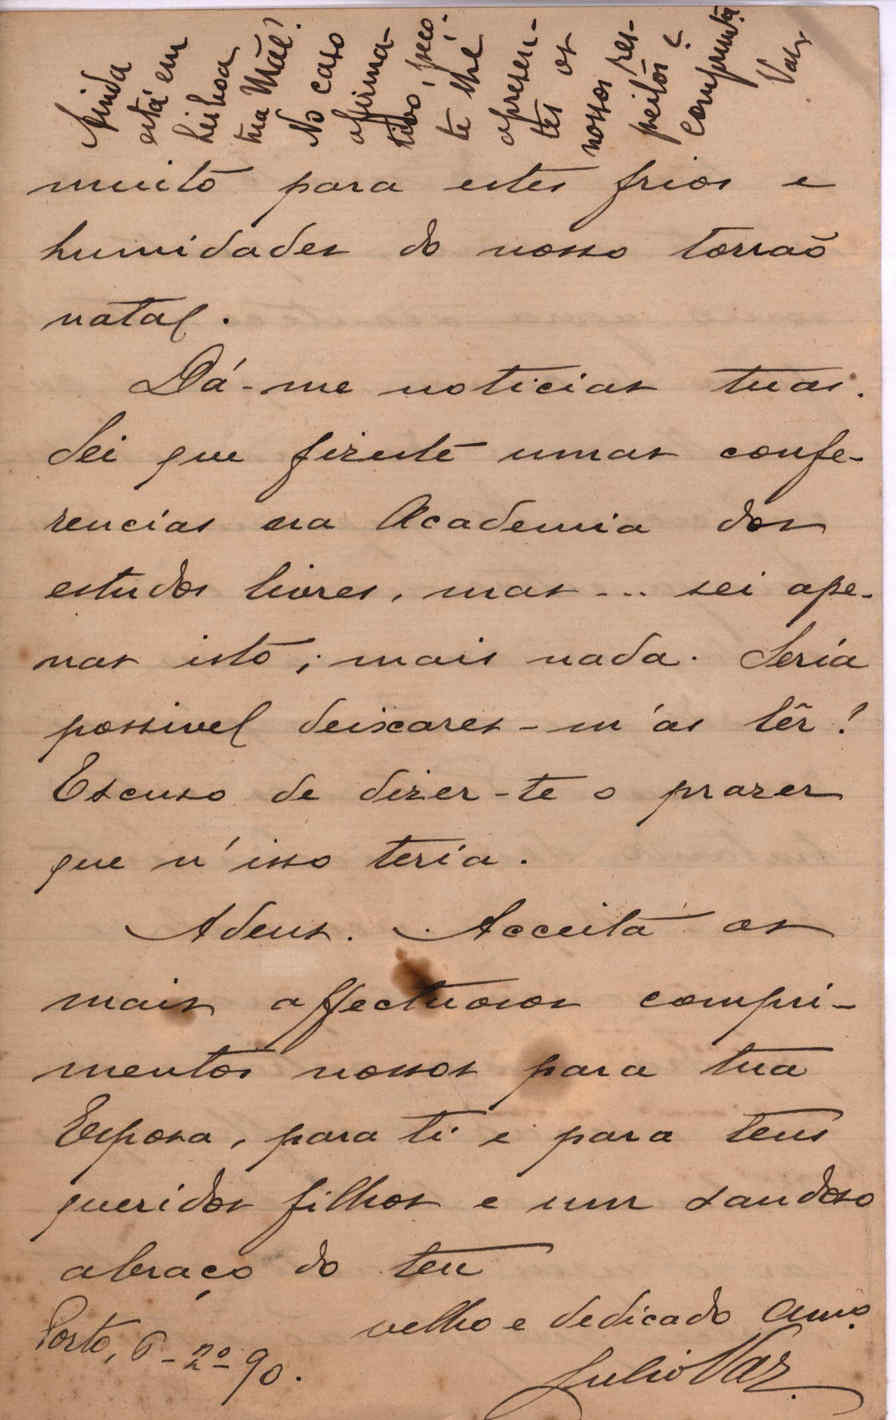 Ainda
está em
Lisboa
tua Mãe?
No caso
afirma-
tivo, peço-
te lhe
apresen-
tes os
nossos res-
peitos e
comprimtos.
Vaz
muito para estes frios e
humidades do nosso torrão
natal.
Dá-me noticias tuas.
Sei que fizeste umas confe-
rencias na Academia dos
estudos livres, mas... sei ape-
nas isto; mais nada. Seria
possivel deixares-m'as lêr!
Escuso de dizer-te o prazer
que n'isso teria.
Adeus. Acceita os
mais affectuosos compri-
mentos nossos para tua
Esposa, para ti e para teus
queridos filhos e um saudoso
abraço do teu
velho e dedicado Amo.
Porto, 6-2º-90.
Julio Vaz.